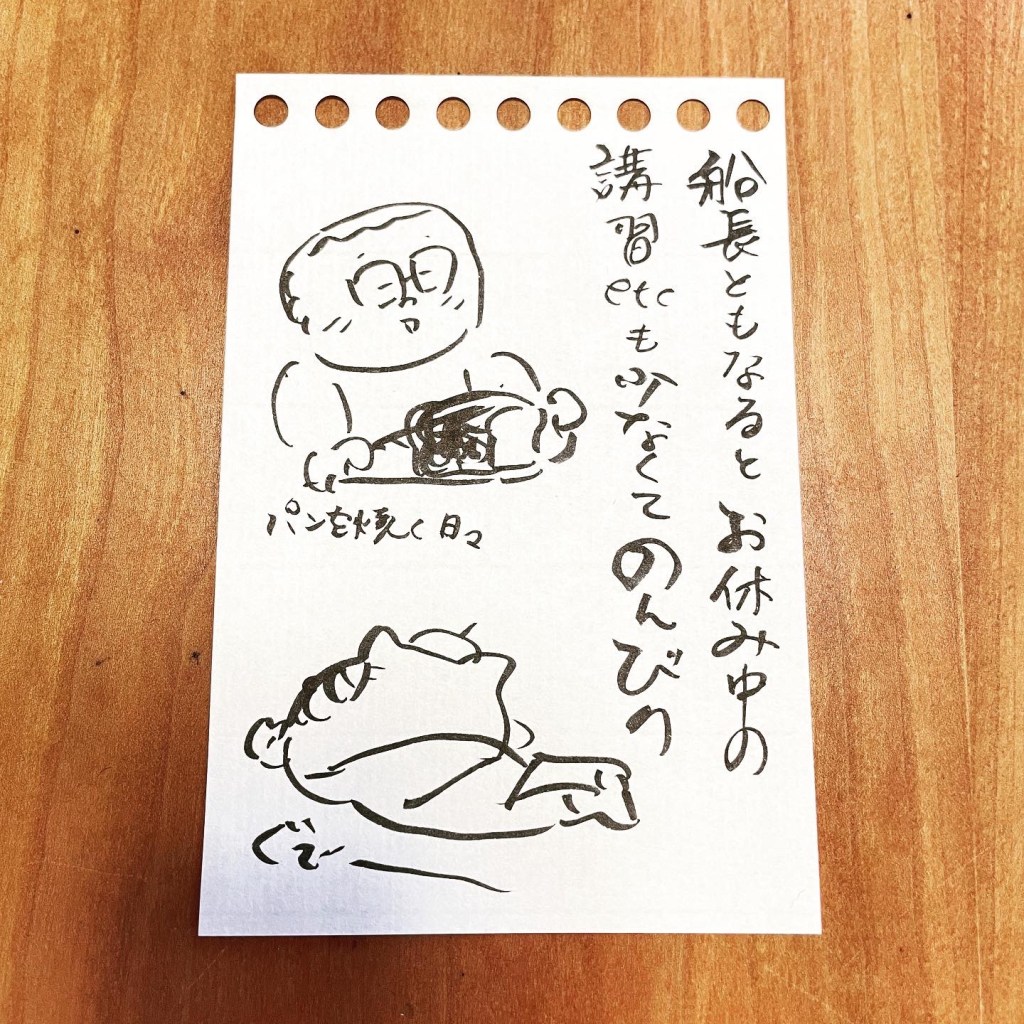 船長ともなると お休み中の
講習etcも少なくて のんびり
パンを焼く日々
ぐでー